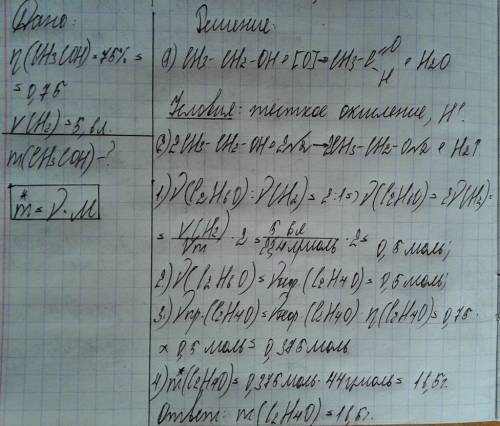 Дано:
η(CH3COH)=75%=
=0,75
V(H2)=5,6л.
m(CH3COH)-?
m*=ν·M
Решение:
1) CH3-CH2-OH+[O]→CH3-C=O-H+H2O
Условия: жесткое окисление, H+.
2) 2CH3-CH2-OH+2Na→2CH3-CH2-ONa+H2↑
1) ν(C2H6O):ν(H2)=2:1=>ν(C2H6O)=2ν(H2)=
=V(H2)/Vm·2=5,6л/22,4л/моль·2=0,5моль;
2) ν(C2H6O)=νтеор.(C2H4O)=0,5моль;
3) νпр.(C2H4O)=νтеор.(C2H4O)·η(C2H4O)=0,75·
×0,5моль=0,375моль
4) m*(C2H4O)=0,375моль·44г/моль=16,5г.
Ответ: m(C2H4O)=16,5г.